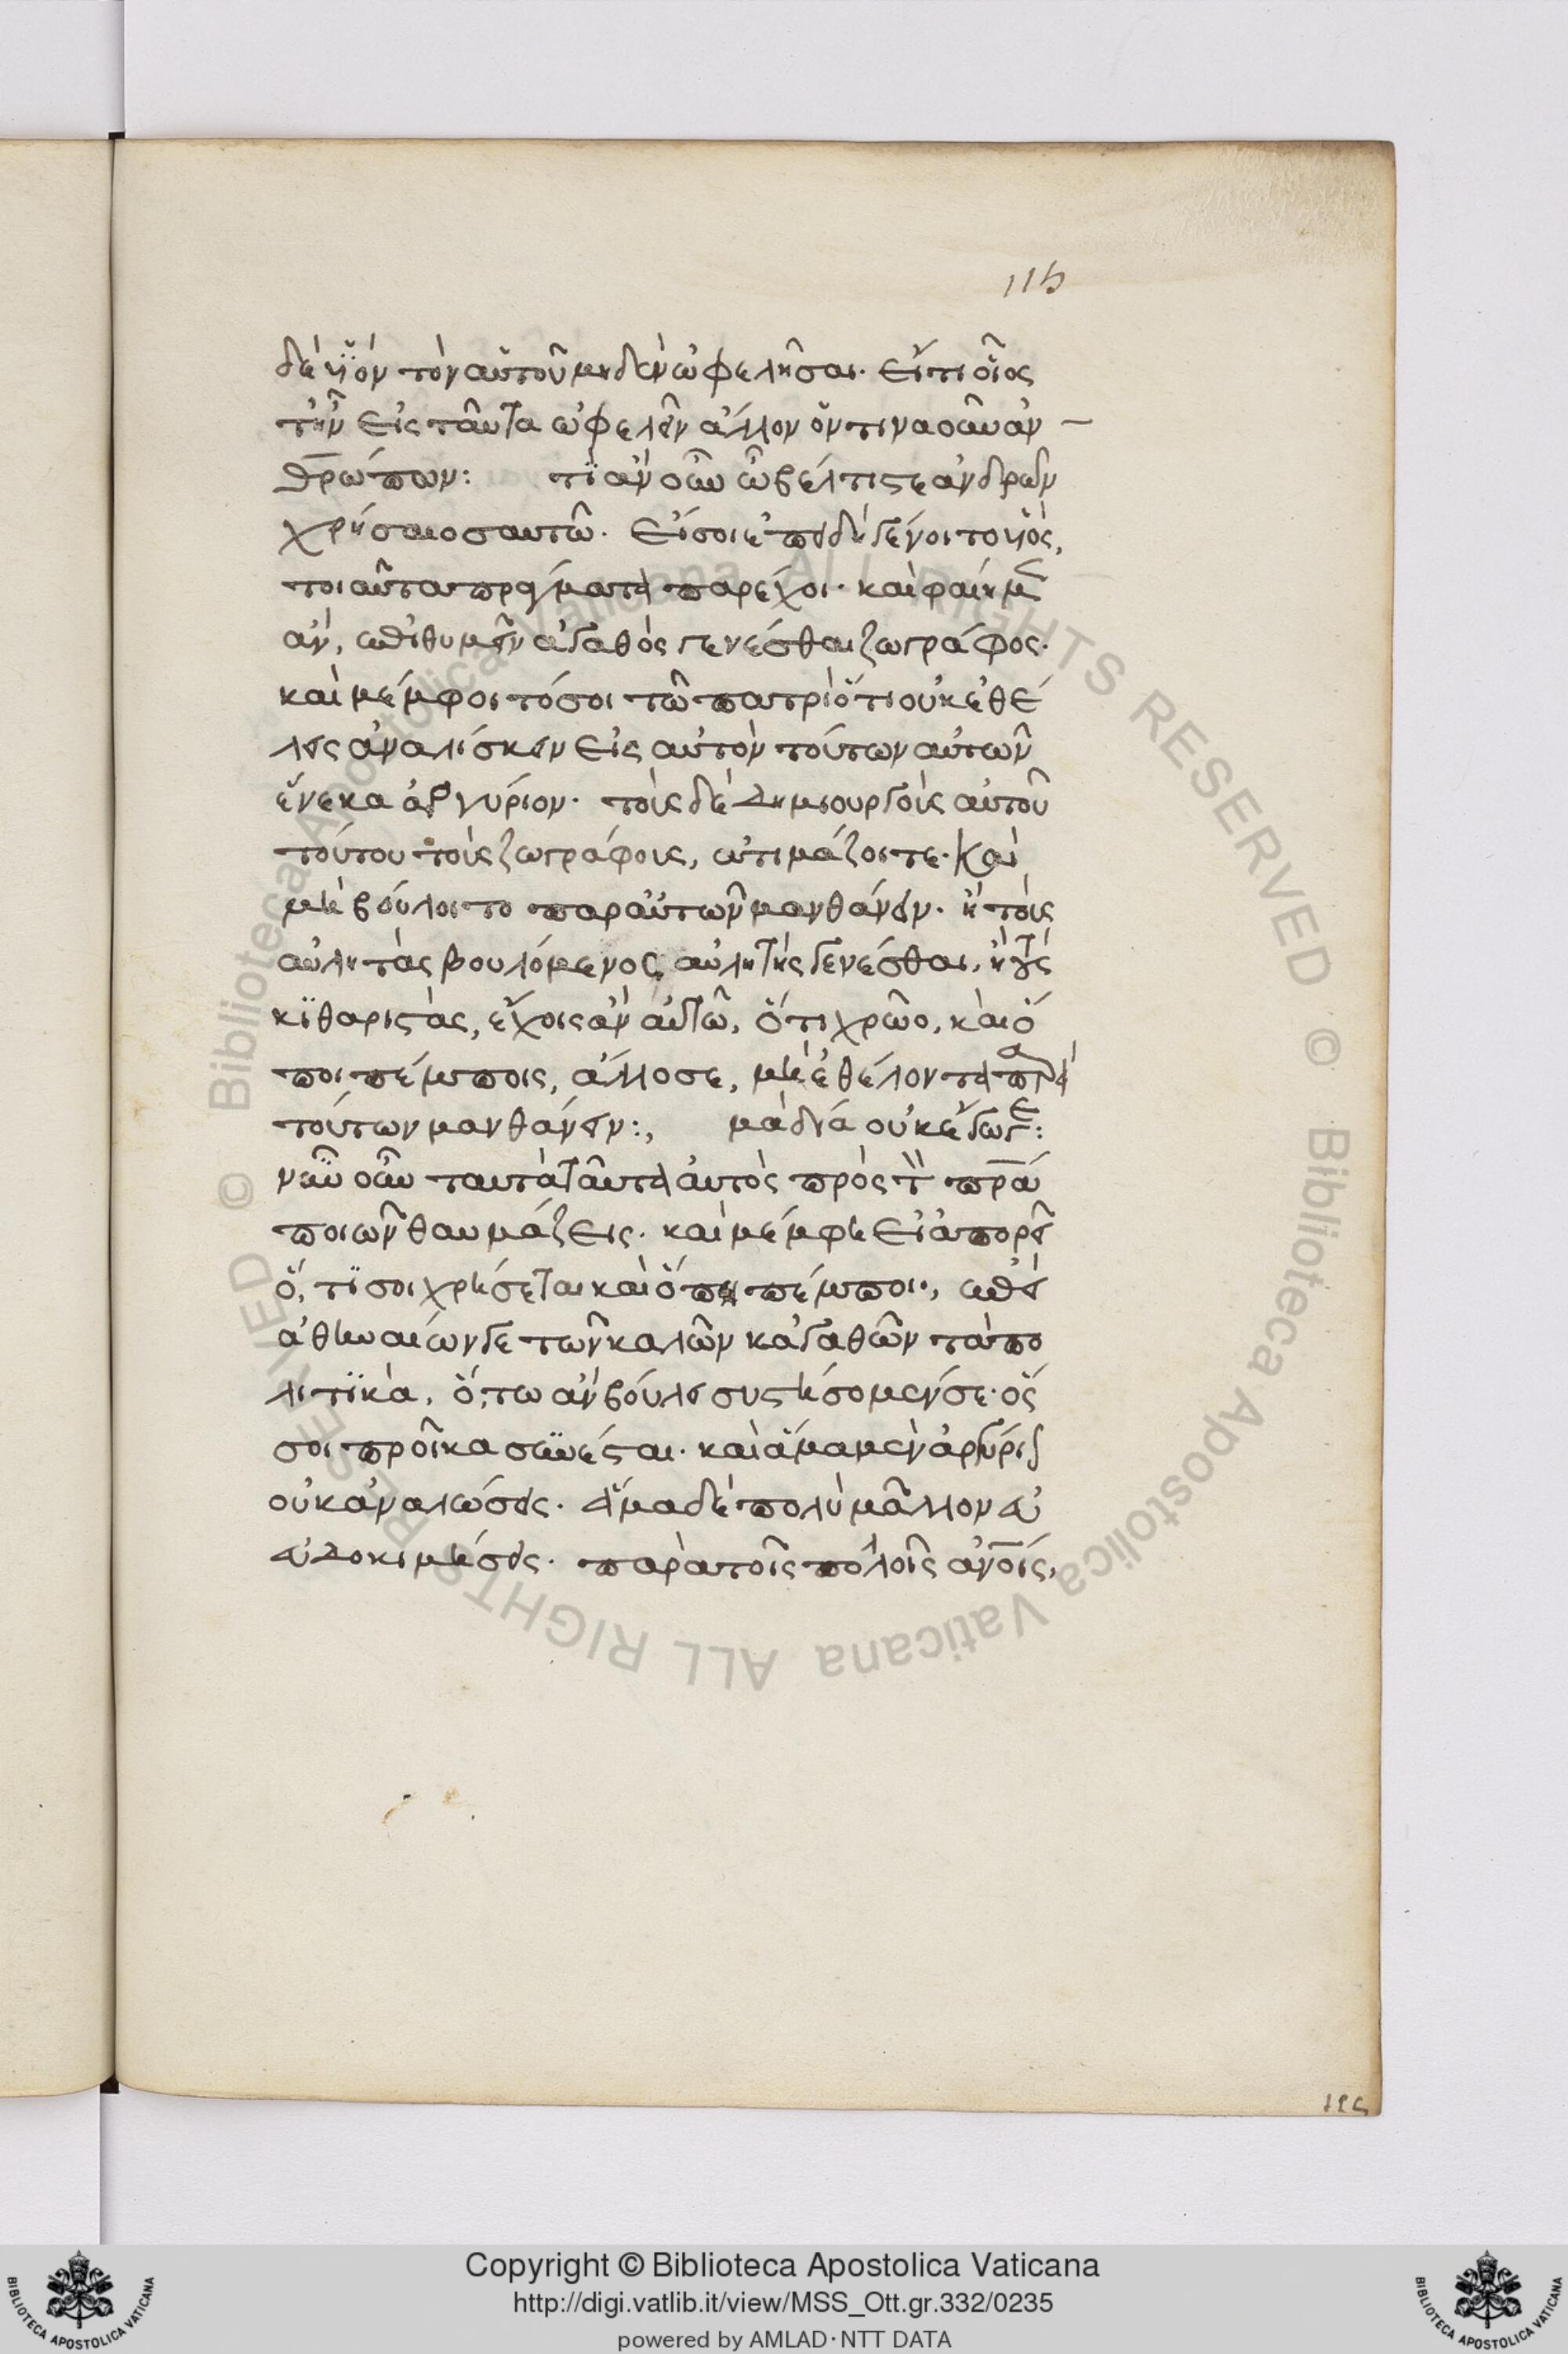 115
δὲ υἱὸν τὸν αὑτοῦ μηδὲν ὠφελῆσαι. εἴ τι οἷος
τ' ἦν εἰς ταῦτα ὠφελεῖν ἄλλον ὅντινα οὖν ἀν
θρώπων: τί ἂν οὖν ὦ βέλτιστε ἀνδρῶν
χρήσαιο σαυτῶ. εἴ σοι ἐπειδὴ γένοιτο υἱὸς,
τοιαῦτα πράγματα παρέχοι. καὶ φαίη μὲν
ἂν, ἐπιθυμεῖν ἀγαθὸς γενέσθαι ζωγράφος.
καὶ μέμφοιτό σοι τῶ πατρὶ ὅτι οὐκ ἐθέ
λεις ἀναλίσκειν εἰς αὐτὸν τούτων αὐτῶν
ἕνεκα ἀργύριον. τοὺς δὲ δημιουργοὺς αὐτοῦ
τούτου τοὺς ζωγράφους, ἀτιμάζοι τε. καὶ
μὴ βούλοιτο παρ' αὐτῶν μανθάνειν. ἢ τοὺς
αὐλητὰς βουλόμενος αὐλητὴς γενέσθαι, ἢ τοὺς
κιθαριστὰς, ἔχοις ἂν αὐτῶ, ὅτι χρῶο, καὶ ὅ
ποι πέμποις, ἄλλοσε, μὴ ἐθέλοντα παρὰ
τούτων μανθάνειν:, μὰ δία οὐκ ἔγωγε:
νῦν οὖν ταυτὰ ταῦτα αὐτὸς πρὸς τὸν πρα
ποιῶν θαυμάζεις. καὶ μέμφη εἰ ἀπορεῖ
ὅ, τι σοι χρήσεται καὶ ὅπη πέμποι., ἐπεὶ
ἀθηναίων γε τῶν καλῶν κἀγαθῶν τὰ πο
λιτικὰ, ὅ,τω ἂν βούλει συστήσομέν σε. ὅς
σοι προῖκα συνέσται. καὶ ἅμα μὲν ἀργύριον
οὐκ ἀναλώσεις. ἅμα δὲ πολὺ μᾶλλον εὐ
εὐδοκιμήσεις. παρὰ τοῖς πολλοῖς ἀνοις,
Copyright © Biblioteca Apostolica Vaticana
http://digi.vatlib.it/view/MSS_Ott.gr.332/0235
powered by AMLAD·NTT DATA